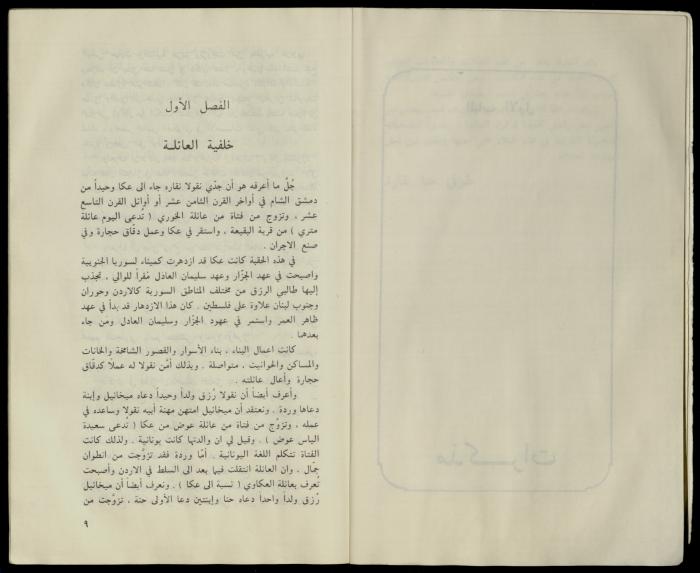 الفصل الأول
خلفية العائلـة
جُلّ ما أعرفه هو أن جدّي نقولا نقاره جاء الى عكا وحيداً من
دمشق الشام في أواخر القرن الثامن عشر أو أوائل القرن التاسع
عشر ، وتزوج من فتاة من عائلة الخوري ( تُدعى اليوم عائلة
متري ) من قرية البقيعة ، واستقر في عكا وعمل دقّاق حجارة وفي
صنع الاجران .
في هذه الحقبة كانت عكا قد ازدهرت كميناء لسوريا الجنوبية
واصبحت في عهد الجزّار وعهد سليمان العادل مَقراً للوالي ، تجذب
إليها طالبي الرزق من مختلف المناطق السورية كالاردن وحوران
وجنوب لبنان علاوة على فلسطين . كان هذا الازدهار قد بدأ في عهد
ظاهر العمر واستمر في عهود الجزّار وسليمان العادل ومن جاء
بعدهما .
كانت اعمال البناء ، بناء الأسوار والقصور الشامخة والخانات
والمساكن والحوانيت ، متواصلة . وبذلك أمَّن نقولا له عملاً كدقّاق
حجارة وأعال عائلته .
وأعرف أيضاً أن نقولا رُزق ولداً وحيداً دعاه ميخائيل وإبنة
دعاها وردة . ونعتقد أن ميخائيل امتهن مهنة أبيه نقولا وساعده في
عمله ، وتزوّج من فتاة من عائلة عوض من عكا ( تُدعى سعيدة
الياس عوض ) . وقيل لي ان والدتها كانت يونانية . ولذلك كانت
الفتاة تتكلم اللغة اليونانية . أمّا وردة فقد تزوّجت من انطوان
جمّال . وان العائلة انتقلت فيما بعد الى السلط في الاردن وأصبحت
تُعرف بعائلة العكاوي ( نسبة الى عكا ) . ونعرف أيضاً أن ميخائيل
رُزق ولداً واحداً دعاه حنا وإبنتين دعا الأولى حنة ، تزوّجت من
٩